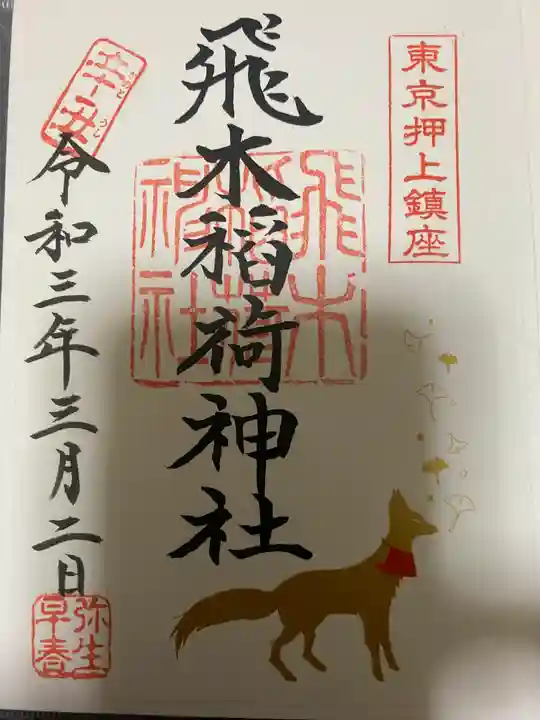 東京押上鎮座
飛木稲荷神社
飛木稲荷神社
辛丑
かのと うし
令和三年三月二日
弥生
早春